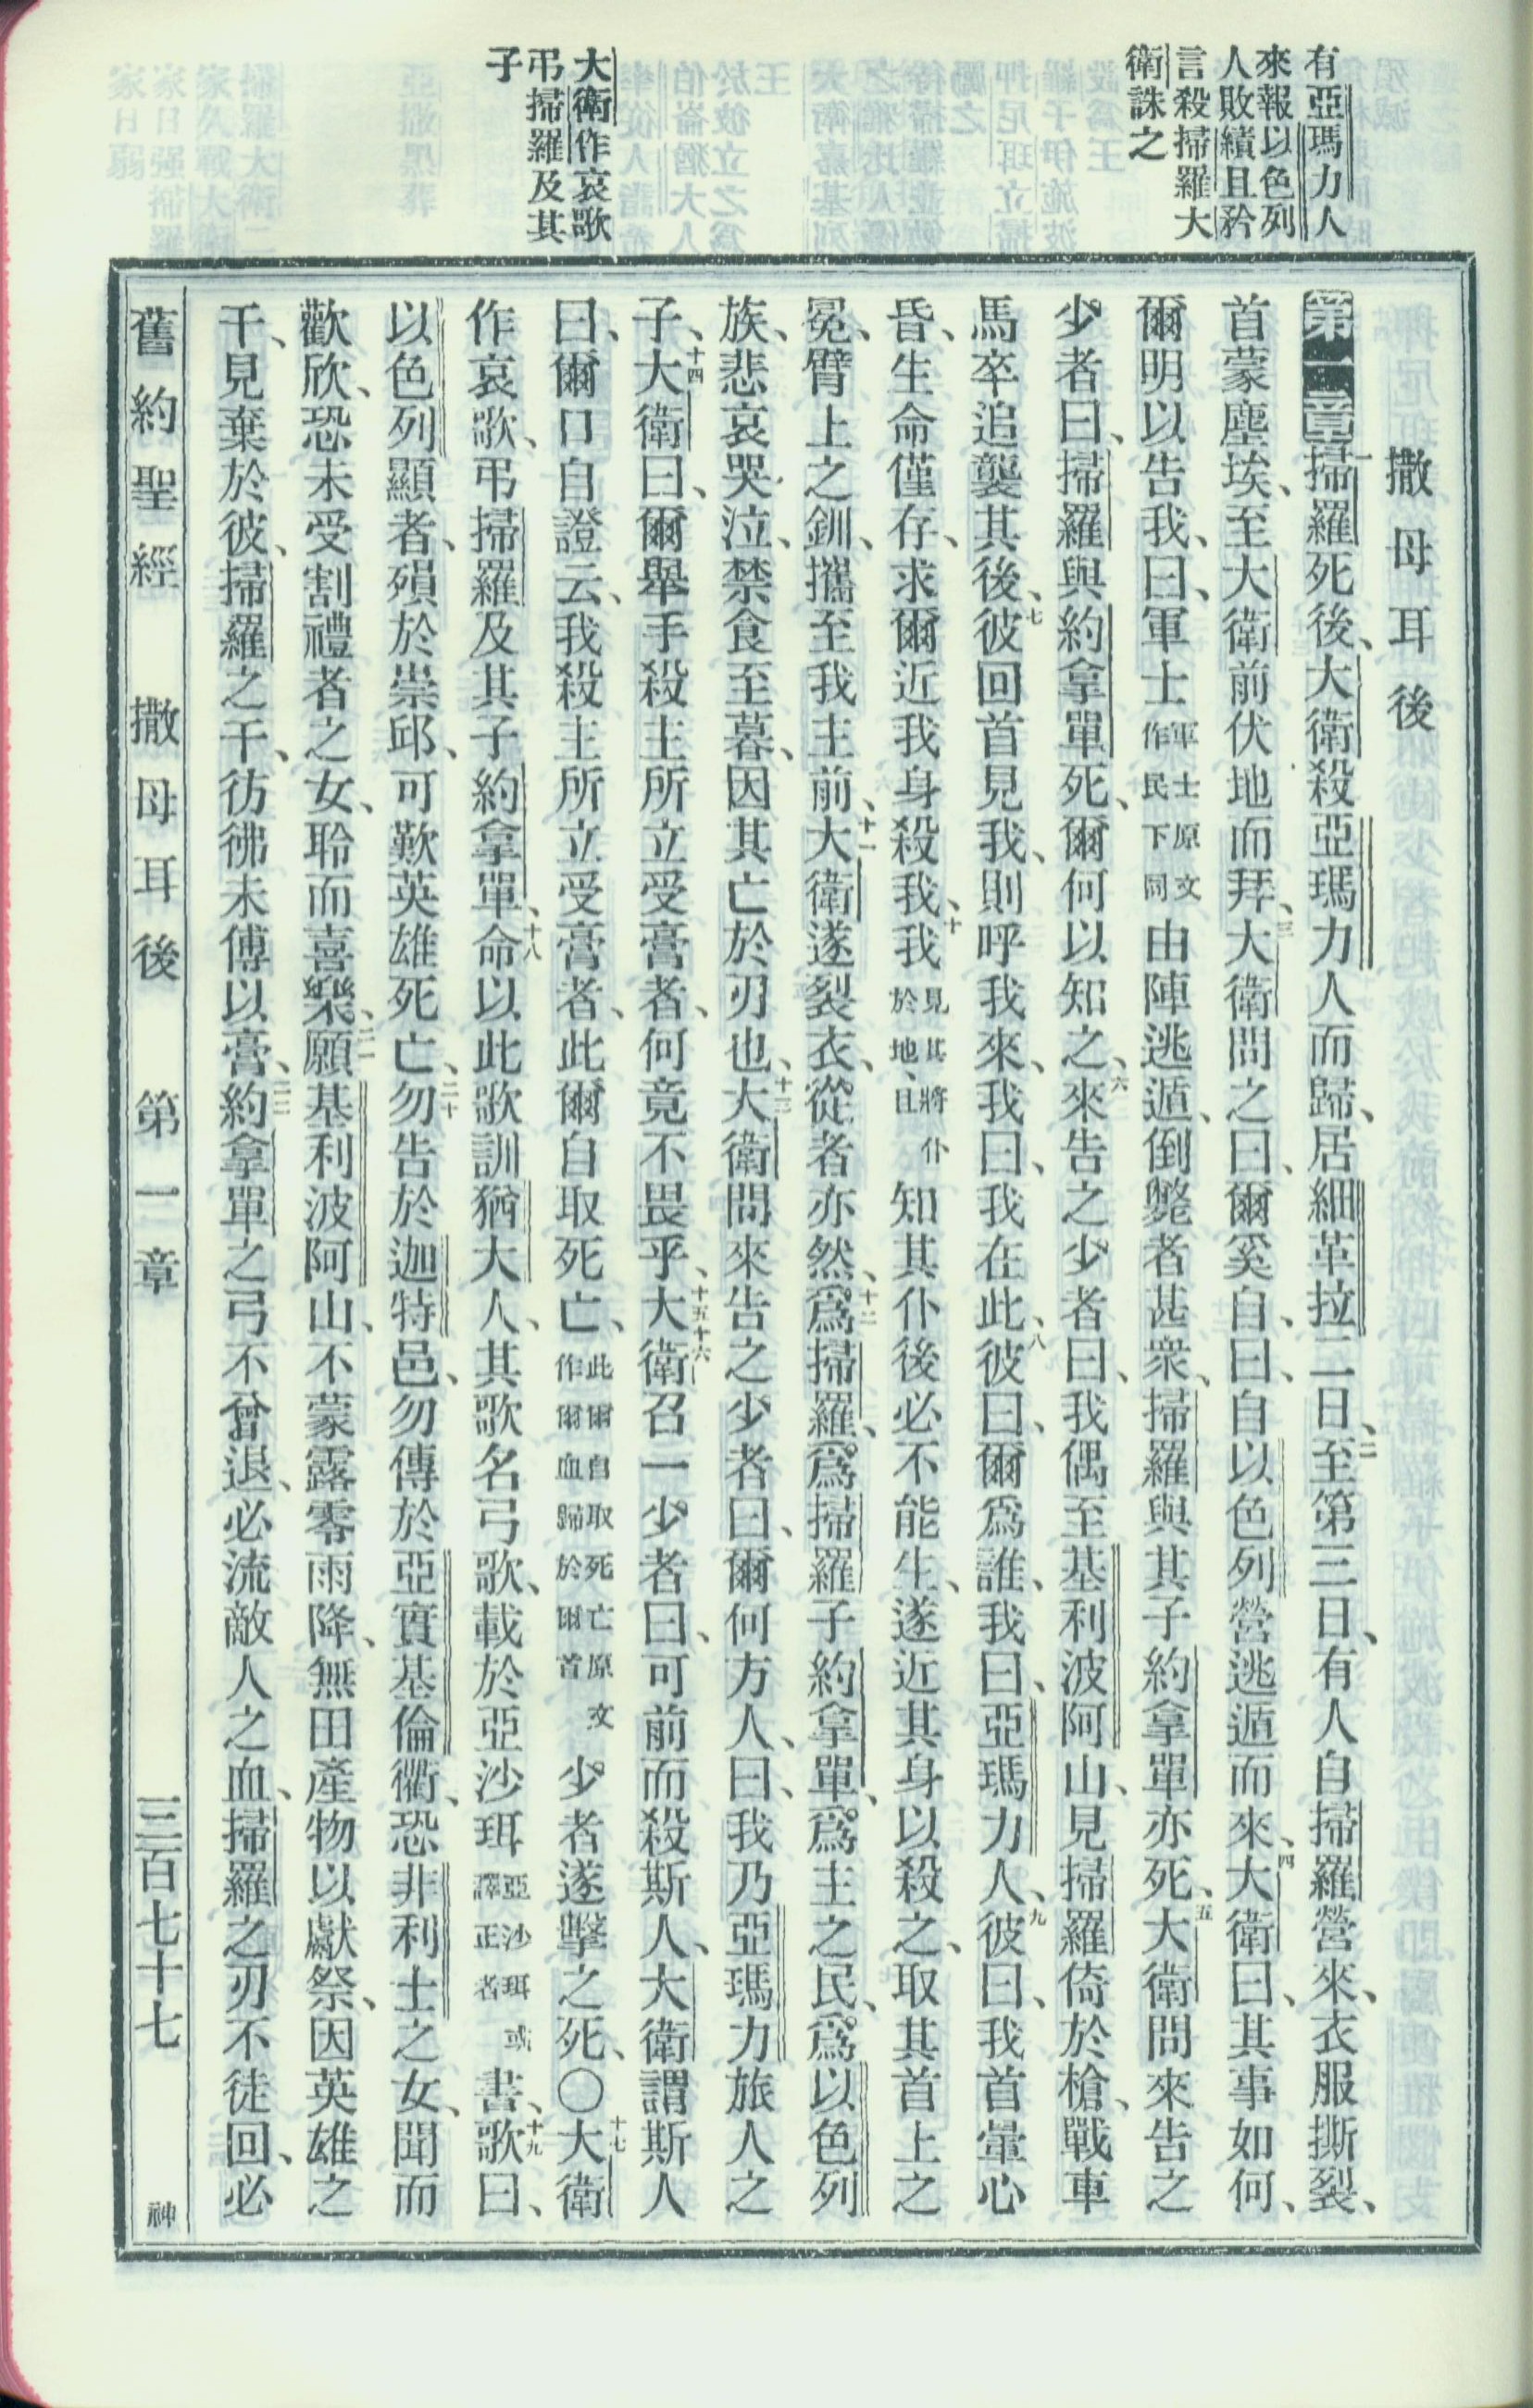 有亞瑪力人
來報以色列
人敗績且矜
言殺掃羅大
衛誅之
大衛作哀歌
弔掃羅及其
子
撒母耳後
第一章一掃羅死後、大衛殺亞瑪力人而歸、居細革拉二日、二至第三日、有人自掃羅營來、衣服撕裂、
首蒙塵埃、至大衛前伏地而拜、三大衛問之曰、爾奚自、曰、自以色列營逃遁而來、四大衛曰、其事如何、
爾明以告我、曰、軍士軍士原文作民下同由陣逃遁、倒斃者甚衆、掃羅與其子約拿單亦死、五大衛問來告之
少者曰、掃羅與約拿單死、爾何以知之、六來告之少者曰、我偶至基利波阿山、見掃羅倚於槍、戰車
馬卒追襲其後、七彼回首見我、則呼我來、我曰、我在此、八彼曰、爾爲誰、我曰、亞瑪力人、九彼曰、我首暈心
昏、生命僅存、求爾近我身殺我、十我見其將仆於地、且知其仆後必不能生、遂近其身以殺之、取其首上之
冕、臂上之釧、攜至我主前、十一大衛遂裂衣、從者亦然、十二爲掃羅、爲掃羅子約拿單、爲主之民、爲以色列
族、悲哀哭泣、禁食至暮、因其亡於刃也、十三大衛問來告之少者曰、爾何方人、曰、我乃亞瑪力旅人之
子、十四大衛曰、爾舉手殺主所立受膏者、何竟不畏乎、十五十六大衛召一少者曰、可前而殺斯人、大衛謂斯人
曰、爾口自證云、我殺主所立受膏者、此爾自取死亡、此爾自取死亡原文作爾血歸於爾首少者遂擊之死、〇十七大衛
作哀歌、弔掃羅及其子約拿單、十八命以此歌訓猶大人、其歌名弓歌、載於亞沙珥亞沙珥或譯正者書、十九歌曰、
以色列顯者、殞於崇邱、可歎英雄死亡、二十勿告於迦特邑、勿傳於亞實基倫衢、恐非利士之女、聞而
歡欣、恐未受割禮者之女、聆而喜樂、二一願基利波阿山、不蒙露零雨降、無田產物以獻祭、因英雄之
干、見棄於彼、掃羅之干、彷彿未傅以膏、二二約拿單之弓不曾退、必流敵人之血、掃羅之刃不徒回、必
舊約聖經 撒母耳後 第一章 三百七十七 神